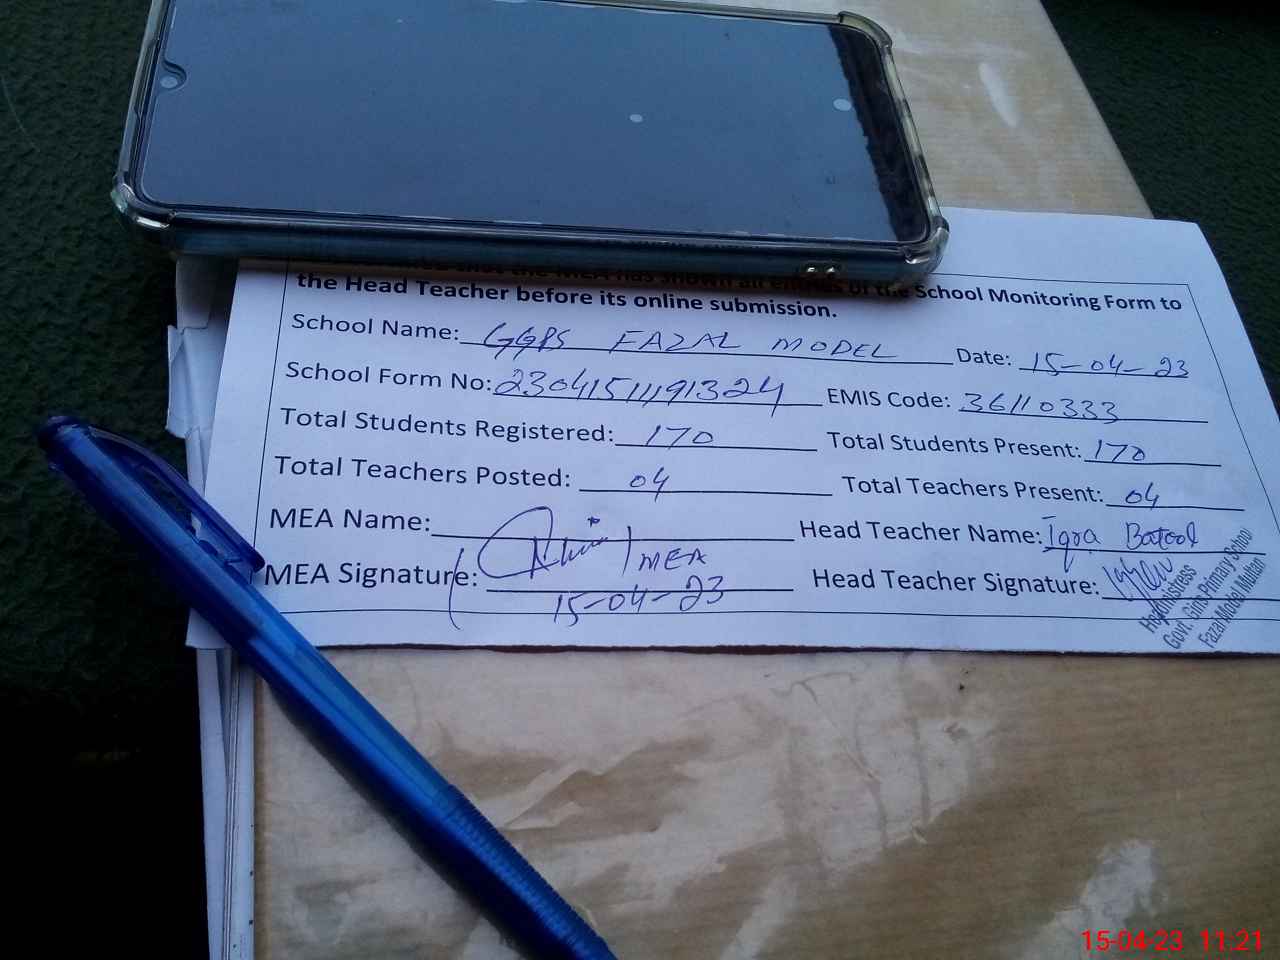 that the MEA has shown all entries of the School Monitoring Form to
the Head Teacher before its online submission.
School Name: GGPS FAZAL MODEL Date: 15-04-23
School Form No: 23041511191324 EMIS Code: 36110333
Total Students Registered: 170 Total Students Present: 170
Total Teachers Posted: 04 Total Teachers Present: 04
MEA Name: Head Teacher Name: Iqra Batool
MEA Signature: MEA Head Teacher Signature:
15-04-23
Headmistress
Govt. Girls Primary School
Fazal Model Multan
15-04-23 11:21